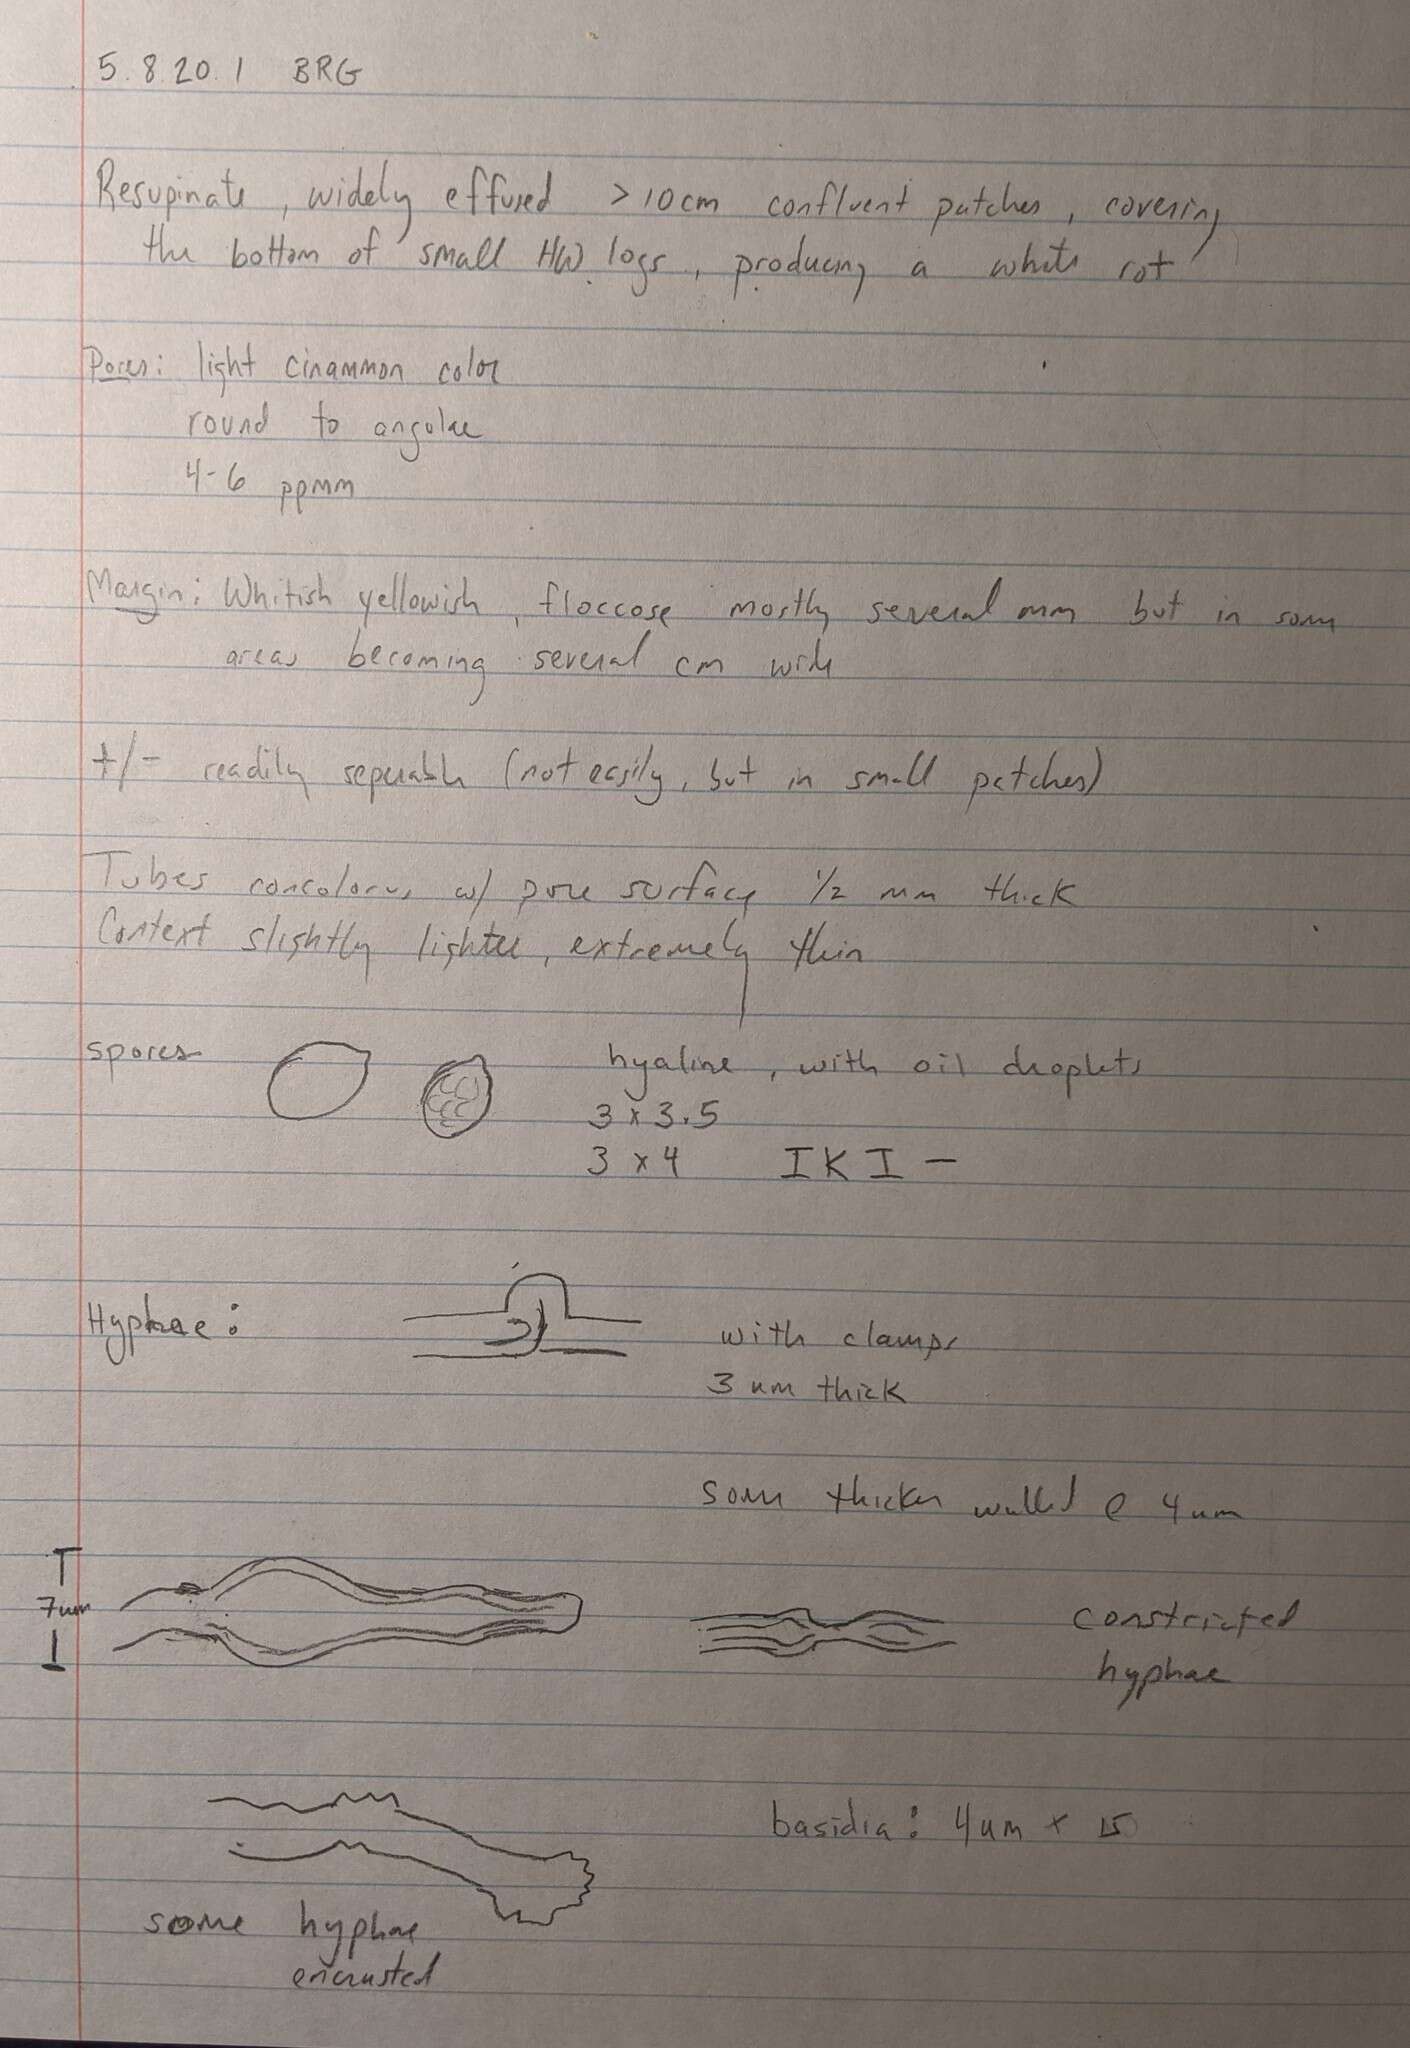 5.8.20.1 BRG
Resupinate, widely effused >10cm confluent patches, covering
the bottom of small HW logs, producing a white rot
Pores: light cinammon color
round to angular
4-6 ppmm
Margin: Whitish yellowish, floccose mostly several mm but in some
areas becoming several cm wide
+/- readily seperable (not easily, but in small patches)
Tubes concolorus w/ pore surface 1/2 mm thick
Context slightly lighter, extremely thin
spores
hyaline, with oil droplets
3 x 3.5
3 x 4 IKI -
Hyphae:
with clamps
3 um thick
some thicker walled @ 4um
7um
constricted
hyphae
basidia: 4um x 15
some hyphae
encrusted